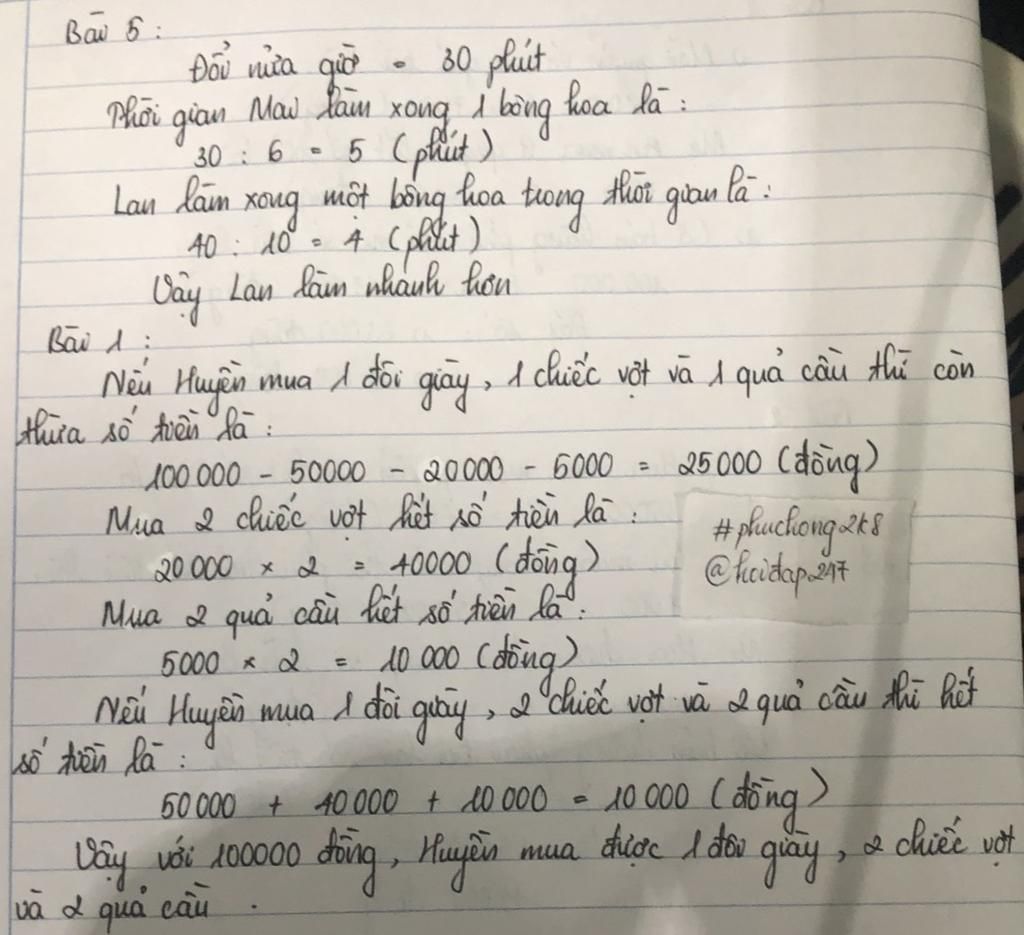 Bài 5 :
Đổi nửa giờ = 30 phút
Thời gian Mai làm xong 1 bông hoa là :
30 : 6 = 5 (phút)
Lan làm xong một bông hoa trong thời gian là :
40 : 10 = 4 (phút)
Vậy Lan làm nhanh hơn
Bài 1 :
Nếu Huyền mua 1 đôi giày, 1 chiếc vợt và 1 quả cầu thì còn
thừa số tiền là :
100 000 - 50000 - 20 000 - 5000 = 25 000 (đồng)
Mua 2 chiếc vợt hết số tiền là :
20 000 × 2 = 40000 (đồng)
#phuchong2k8
@hoidap247
Mua 2 quả cầu hết số tiền là :
5000 × 2 = 10 000 (đồng)
Nếu Huyền mua 1 đôi giày, 2 chiếc vợt và 2 quả cầu thì hết
số tiền là :
50 000 + 40 000 + 10 000 = 10 000 (đồng)
Vậy với 100000 đồng, Huyền mua được 1 đôi giày, 2 chiếc vợt
và 2 quả cầu .